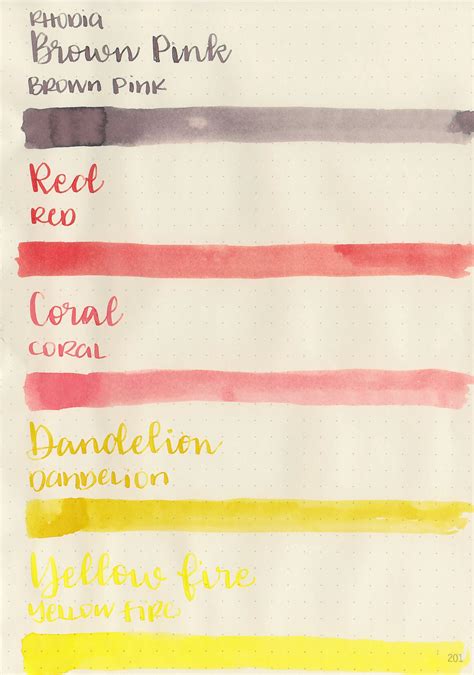 RHODIA
Brown Pink
BROWN PINK
Red
RED
Coral
CORAL
Dandelion
DANDELION
Yellow fire
YELLOW FIRE
201